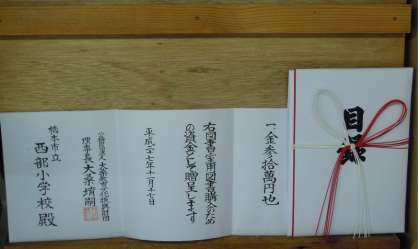 目録
一金参拾萬円也
右図書室用図書購入のため
の資金として贈呈します
平成二十七年十一月十七日
公益財団法人 大桑教育文化振興財団
理事長 大桑堉嗣
橋本市立
西部小学校 殿